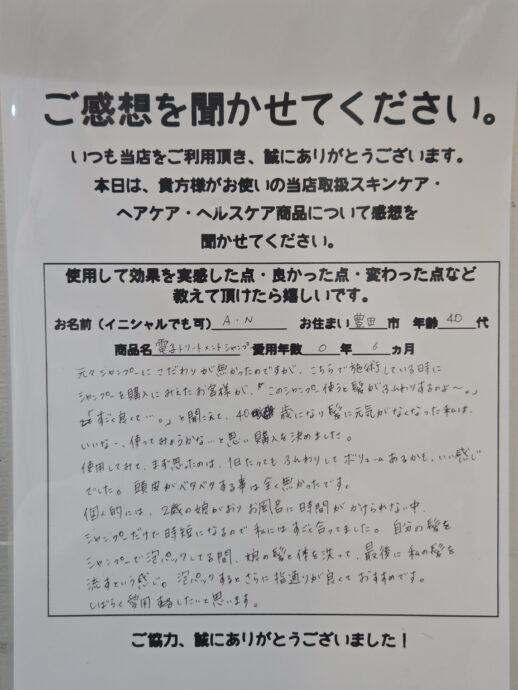 ご感想を聞かせてください。
いつも当店をご利用頂き、誠にありがとうございます。
本日は、貴方様がお使いの当店取扱スキンケア・
ヘアケア・ヘルスケア商品について感想を
聞かせてください。
使用して効果を実感した点・良かった点・変わった点など
教えて頂けたら嬉しいです。
お名前（イニシャルでも可） A・N お住まい 豊田 市 年齢 40 代
商品名 電子トリートメントシャンプー 愛用年数 0 年 6 ヵ月
元々シャンプーにこだわりが無かったのですが、こちらで施術している時に
シャンプーを購入にみえたお客様が、「このシャンプー使うと髪がふんわりするのよ〜。」
「すごく良くて…。」と聞こえて、40歳になり髪に元気がなくなった私は、
いいな〜、使ってみようかな…と思い購入を決めました。
使用してみて、まず思ったのは、1日たってもふんわりしてボリュームあるかも、いい感じ
でした。頭皮がベタベタする事は全く無かったです。
個人的には、2歳の娘がおりお風呂に時間がかけられない中、
シャンプーだけで時短になるので私にはすごく合ってました。自分の髪を
シャンプーで泡パックしてる間、娘の髪と体を洗って、最後に私の髪を
流すという感じ。泡パックするとさらに指通りが良くておすすめです。
しばらく愛用したいと思います。
ご協力、誠にありがとうございました！